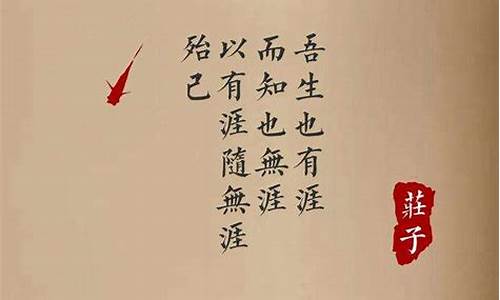 吾生也有涯
而知也無涯
以有涯隨無涯
殆已
莊子